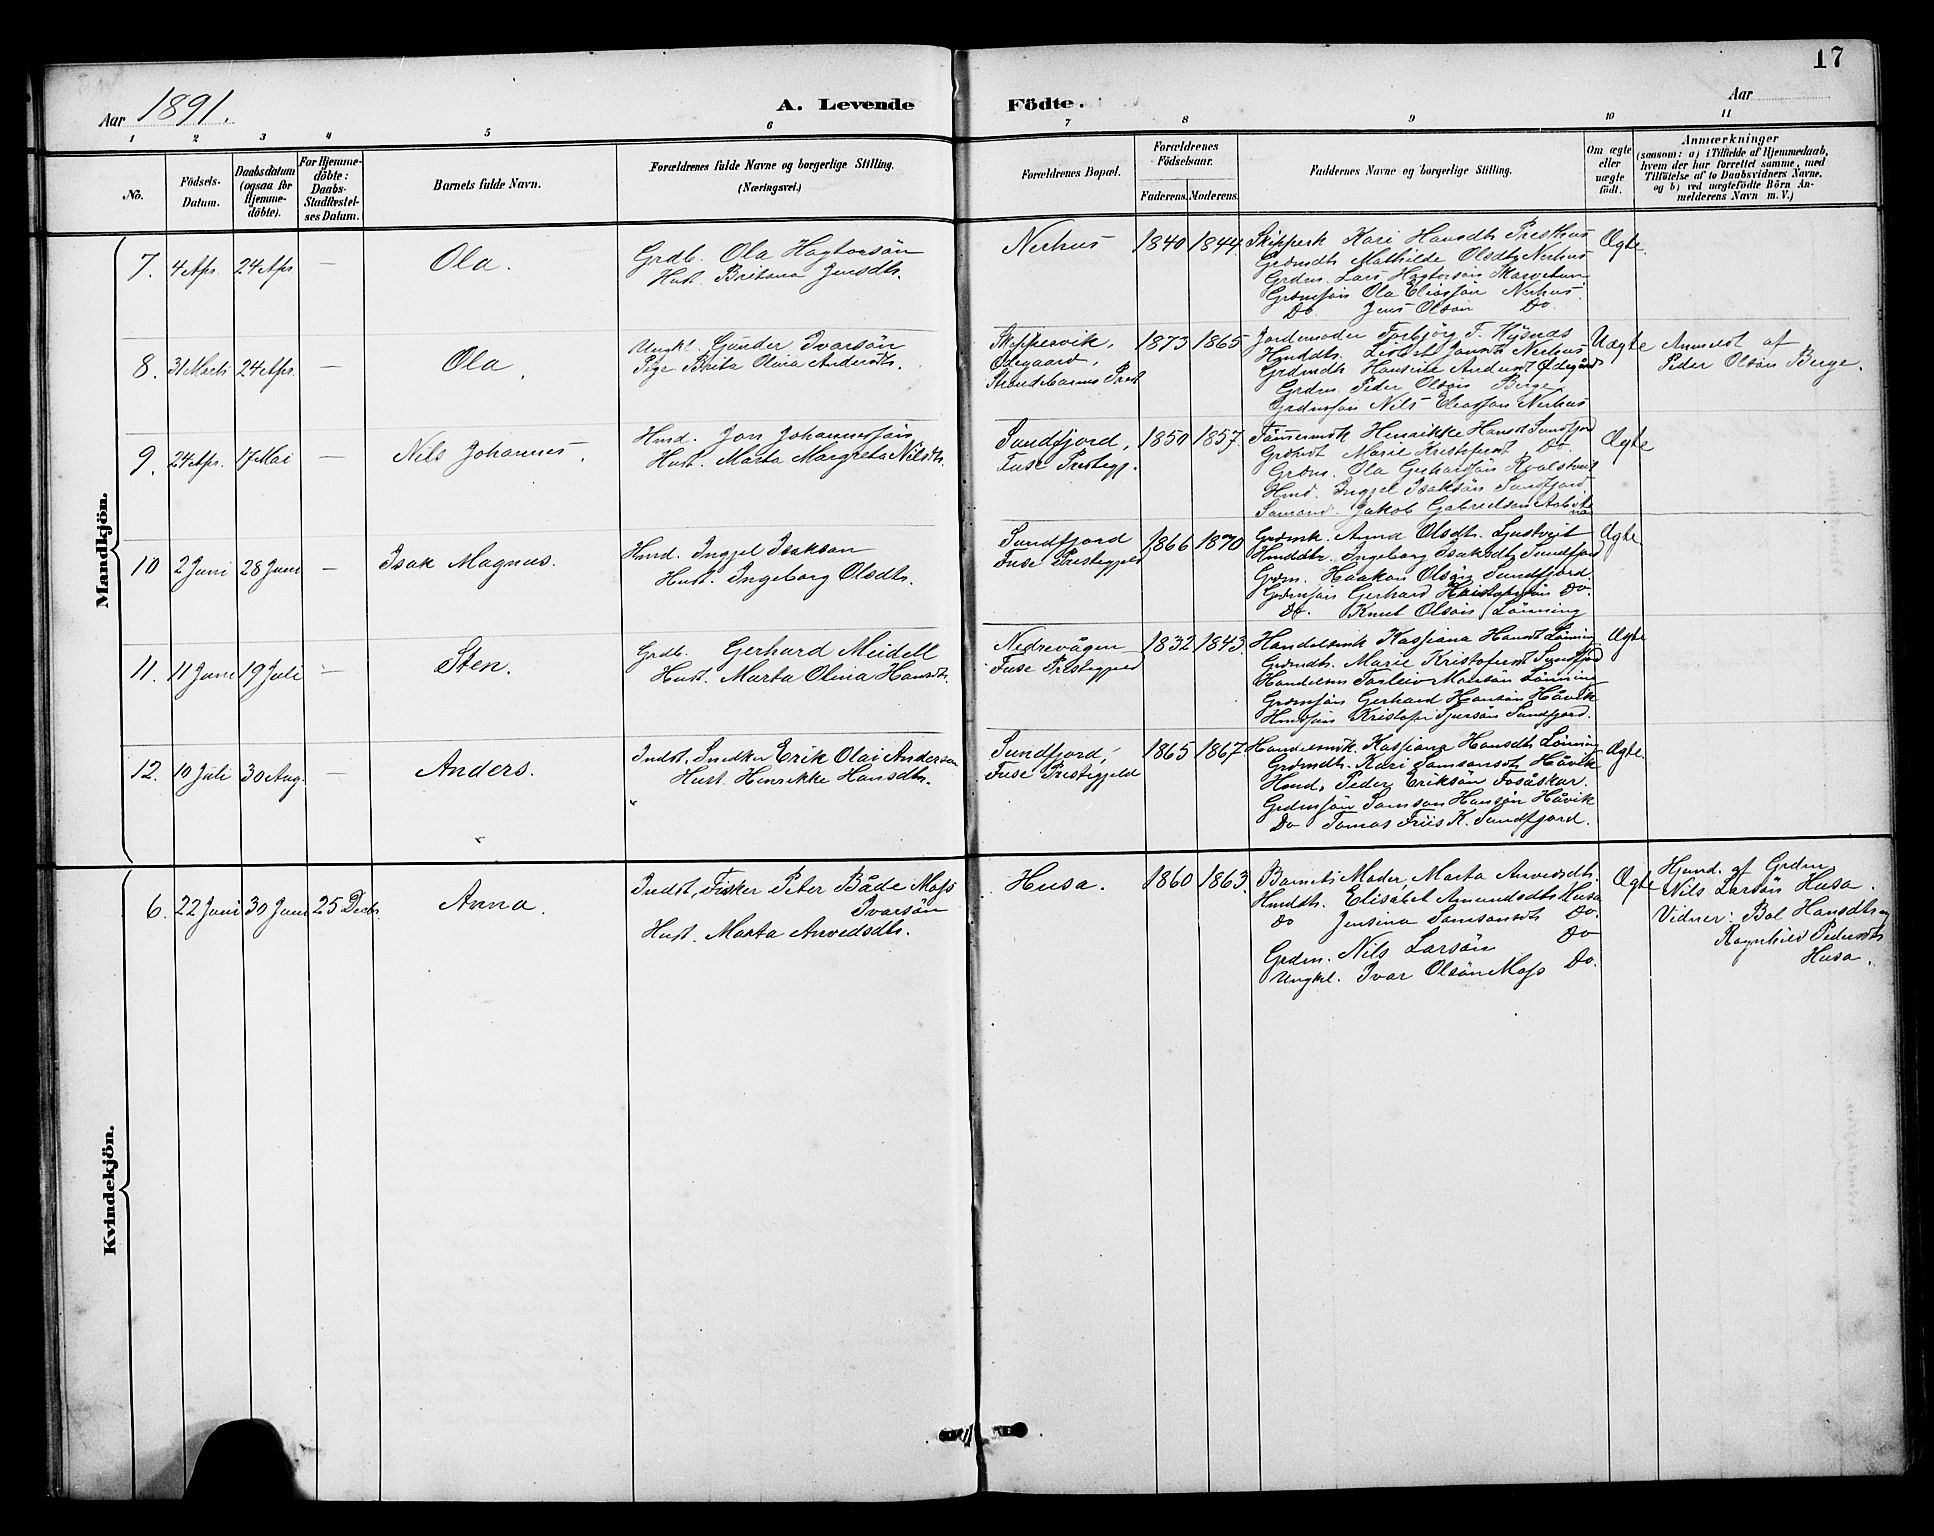 17
Aar 1891.
A. Levende Födte.
Aar
1 2 3 4 5 6 7 8 9 10 11
No.
Födsels-Datum.
Daabsdatum (ogsaa for Hjemme-döbte).
For Hjemme-döbte: Daabs-Stadfæstel-ses Datum.
Barnets fulde Navn.
Forældrenes fulde Navne og borgerlige Stilling.
(Næringsvei.)
Forældrenes Bopæl.
Forældrenes Födselsaar.
Faderens. Moderens.
Faddernes Navne og borgerlige Stilling.
Om ægte eller uægte födt.
Anmærkninger
(saasom: a) i Tilfælde af Hjemmedaab,
hvem der har forrettet samme, med
Tilföielse af to Daabsvidners Navne,
og b) ved uægtefödte Börn An-
melderens Navn m. V.)
Mandkjön.
7. 4 Apr 24 Apr — Ola.
Grdb. Ola Hagtorsön
Hust. Britana Jensdtr.
Nerhus 1840 1844.
Skipperk Kari Hansdtr Presthus
Grdmdtr Mathilde Olsdtr Nerhus
Grdm. Lars Hagtorsön Skarvetun
Grdmsön Ola Eliassön Nerhus.
Do Jens Olsön Do.
Ægte.
8. 31 Marts 24 Apr. — Ola.
Ungk. Gunder Ivarsön
Pige Brita Olina Andersdtr.
Skeppesvik,
Ødegaard,
Strandebarms Prst
1873 1865
Jordemoder Torbjörg T. Hysnes
Hmddtr. Lisbet Jonsdtr Nerhus
Grdmdtr Hansine Andersdt Ødegård
Grdm. Peder Olsön Berge
Grdmsön Nils Eliassön Nerhus
Uægte
Anmeldt af
Peder Olsön Berge.
9. 24 Apr. 17 Mai — Nils Johannes.
Hmd. Jon Johannessön
Hust. Marta Margreta Nilsdtr.
Sundfjord,
Fuse Prestegj.
1850 1857.
Tömmermk Henrikke Hansdt Sundfjord
Grdmdt Marie Kristofersdt Do.
Grdm. Ola Gerhardsön Kvalstveit
Hmd. Ingjel Isaksön Sundfjord
Sömand. Jakob Gabrielsön
Ægte
10 2 Juni 28 Juni — Isak Magnus.
Hmd. Ingjel Isaksön
Hust. Ingeborg Olsdtr.
Sundfjord
Fuse Prestegjeld
1866 1870
Grdmk. Anna Olsdtr. Ljustveit
Hmddtr. Ingeborg Isaksdtr Sundfjord
Grdm. Haakon Olsön Sundfjord.
Grdmsön Gerhard Kristofersön Do.
Do. Knut Olsön Lönning
Ægte
11. 11 Juni 19 Juli — Sten.
Grdb. Gerhard Meidell
Hust. Marta Olina Hansdtr.
Nedrevågen
Fuse Prestegjeld
1832 1843.
Handelsmk Kassiana Hansdt Lönning
Grdmdtr. Marie Kristofersdt Sundfjord
Handelsm Torleiv Monsön Lönning
Grdmsön Gerhard Hansön Håvik
Hmdsön Kristofer Sjursön Sundfjord.
Ægte
12. 10 Juli 30 Aug. — Anders.
Indst. Snedker Erik Olai Anderson
Hust. Henrikke Hansdtr.
Sundfjord,
Fuse Prestegjeld
1865 1867.
Handelsmk. Kassiana Hansdtr Lönning
Grdmdtr. Kari Samsonsdt Håvik
Hmd. Peder Eriksön Fosåskar.
Grdmsön Samson Hansön Håvik
Do Tomas Friis K. Sundfjord.
Ægte.
Kvindekjön.
6. 22 Juni 30 Juni 25 Decbr. Anna.
Indst, Fisker Peter Både Moss
Ivarsön
Hust. Marta Arvedsdtr.
Husa. 1860 1863.
Barnets Moder, Marta Arvedsdtr.
Hmddtr. Elisabet Amundsdtr Husa
Do Jensina Samsonsdt Do.
Grdm. Nils Larsön Do
Ungkl. Ivar Olsön Moss Do.
Ægte
Hjmd. af Grdm
Nils Larsön Husa.
Vidner: Bol Hansdtr og
Ragnhild Pedersdtr
Husa.